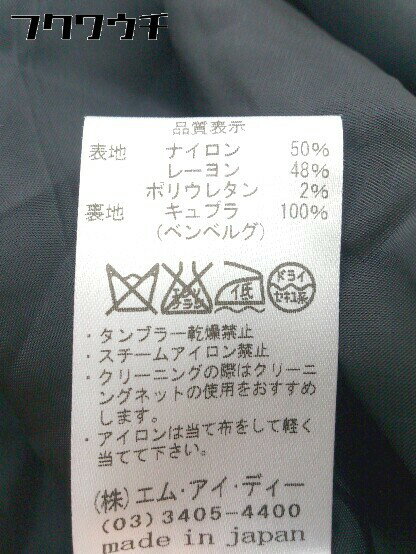 フクワウチ
品質表示
表地 ナイロン 50%
レーヨン 48%
ポリウレタン 2%
裏地 キュプラ 100%
(ベンベルグ)
エンソサラシ 低 ドライ セキユ系
・タンブラー乾燥禁止
・スチームアイロン禁止
・クリーニングの際はクリーニ
ングネットの使用をおすすめ
します。
・アイロンは当て布をして軽く
当てて下さい。
(株)エム・アイ・ディー
(03)3405-4400
made in japan